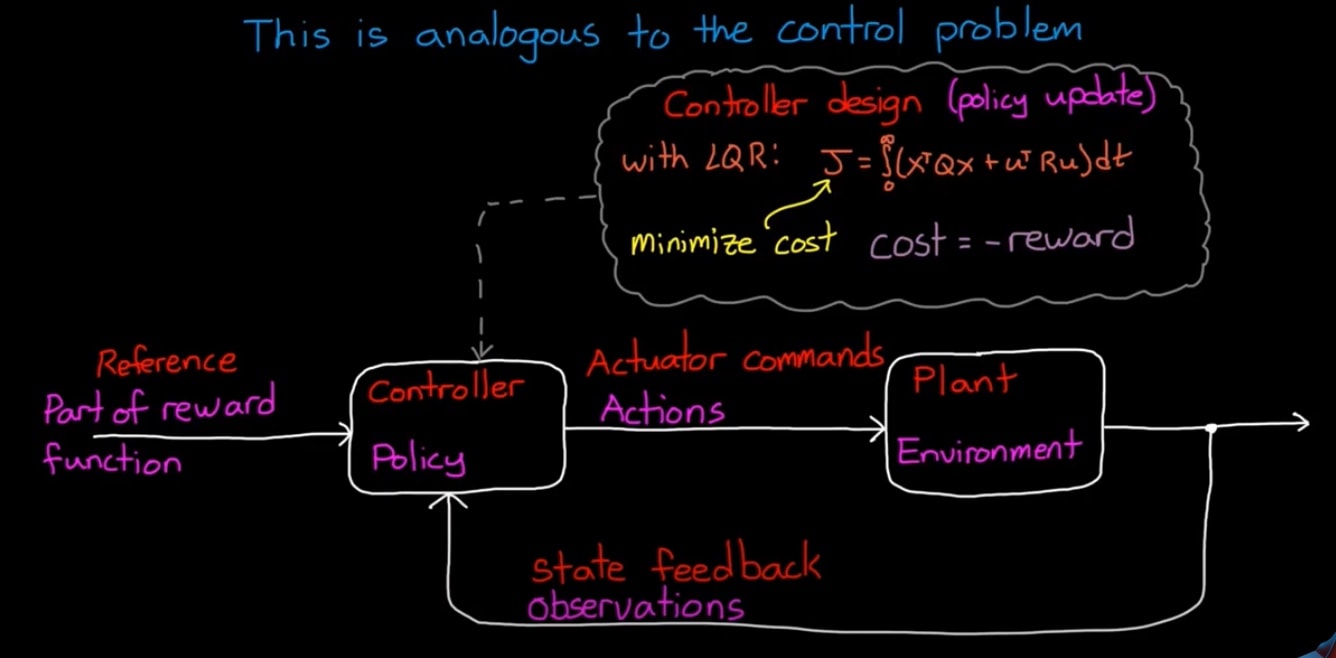 This is analogous to the control problem
Controller design (policy update)
with LQR: J = ∫₀^∞ (xᵀQx + uᵀRu)dt
minimize cost cost = -reward
Reference
Part of reward
function
Controller
Policy
Actuator commands
Actions
Plant
Environment
state feedback
observations